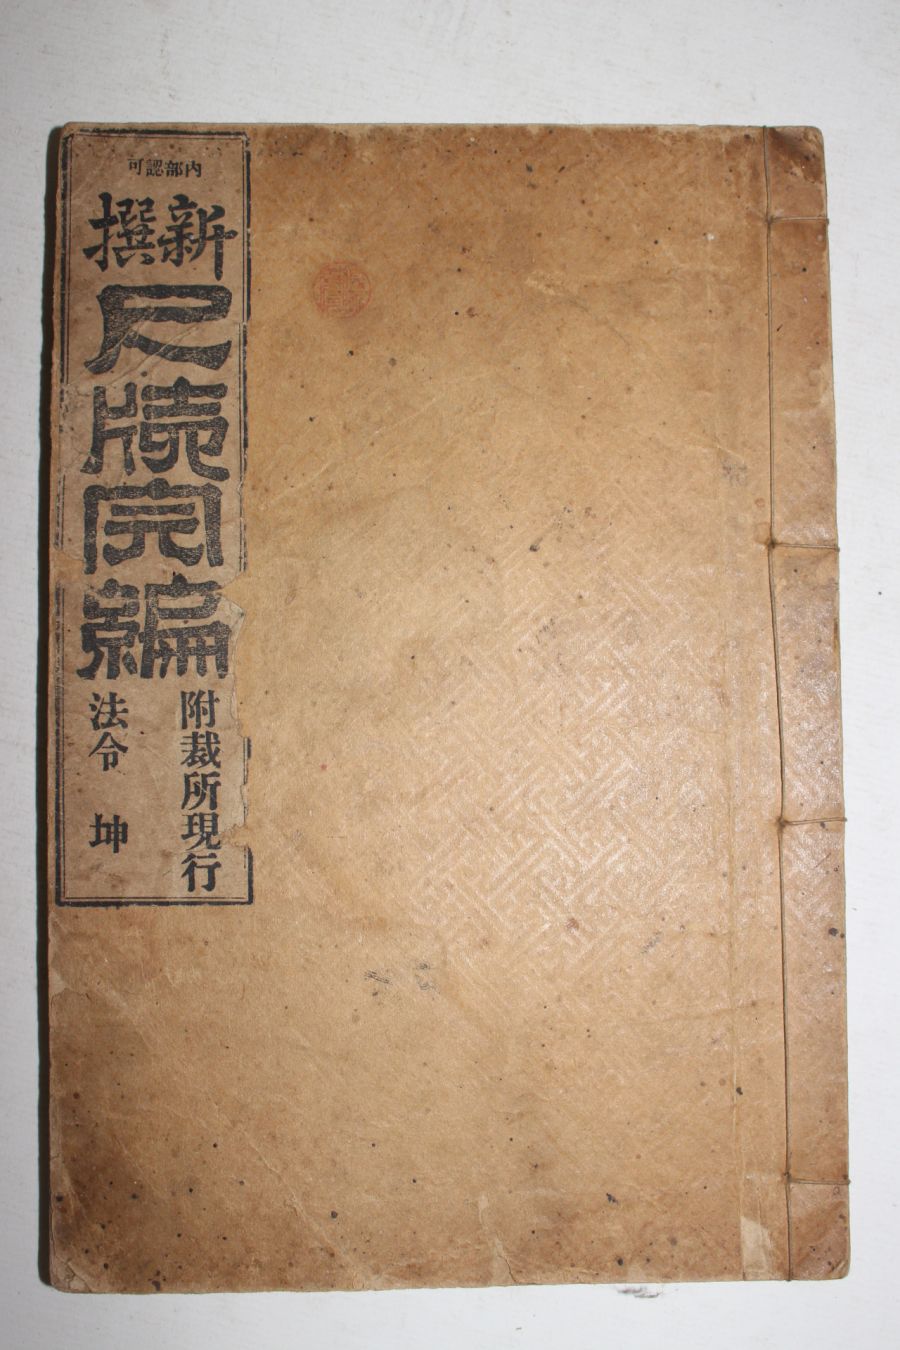 內部認可
新撰
尺牘完編
附裁所現行
法令 坤